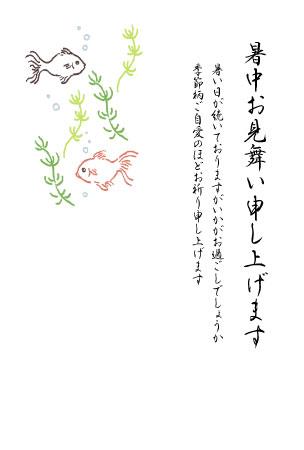 暑中お見舞い申し上げます
暑い日が続いておりますがいかがお過ごしでしょうか
季節柄ご自愛のほどお祈り申し上げます